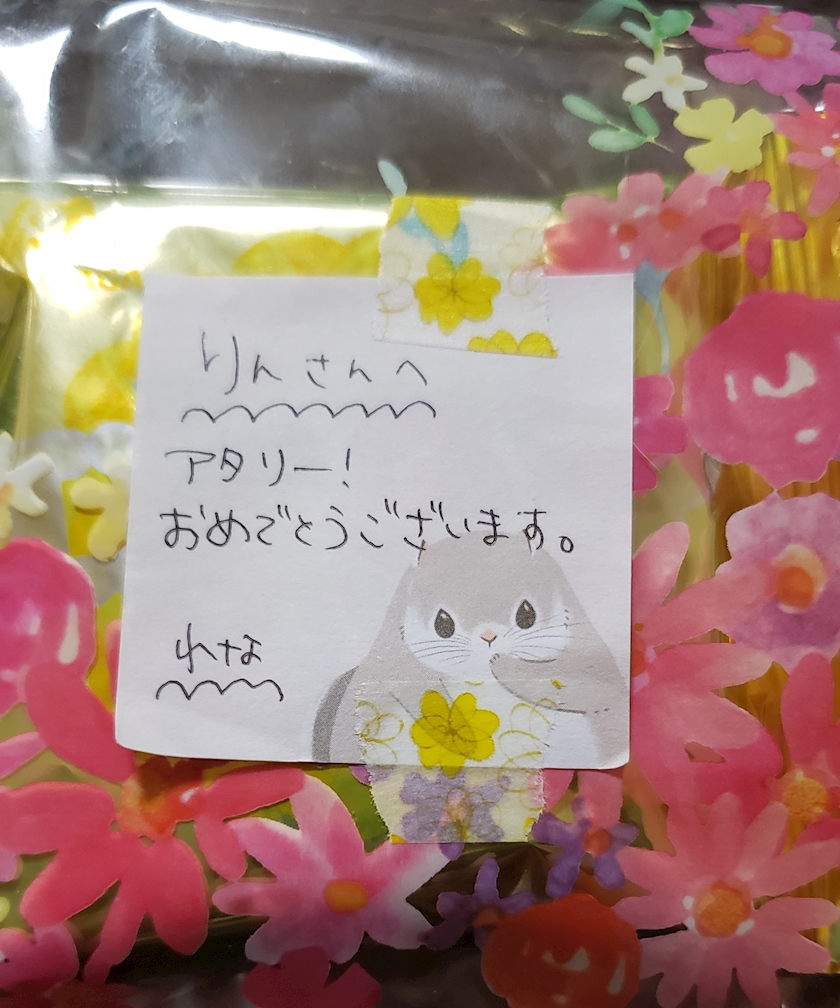 りんさんへ
アタリー!
おめでとうございます。
れな